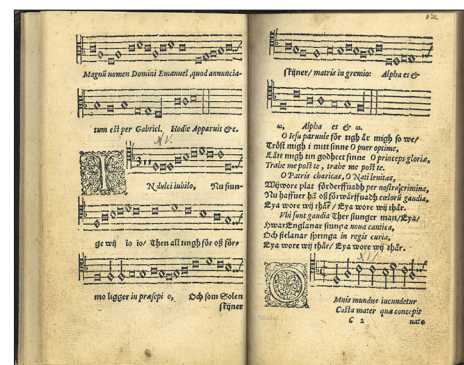 Magnū nomen Domini Emanuel, quod annuncia-
tum est per Gabriel. Hodie Apparuit &c.
XV.
IN dulci iubilo, Nu siun-
ge wij io io/ Then all tingh för oß för-
mo ligger in præsepi o, Och som Solen
skijner
skijner/ matris in gremio: Alpha es &
ω, Alpha es & ω.
O Iesu paruule för tigh är migh so we/
Tröst migh i mitt sinne O puer optime,
Trahe me post te, trahe me post te.
O Patris charitas, O Nati lenitas,
Wijwore plat förderffuadh per nostra crimina,
Nu haffuer hā oß förwärffuadh cœlorū gaudia,
Eya wore wij thär/ Eya wore wij thär.
Vbi sunt gaudia Ther siunger man/Eya/
HwarEnglanar siunga noua cantica,
Och sielanar springa in regis curia,
Eya wore wij thär/ Eya wore wij thär.
XVI
OMnis mundus iucundetur
Casta mater quæ concepit
C 2 nato